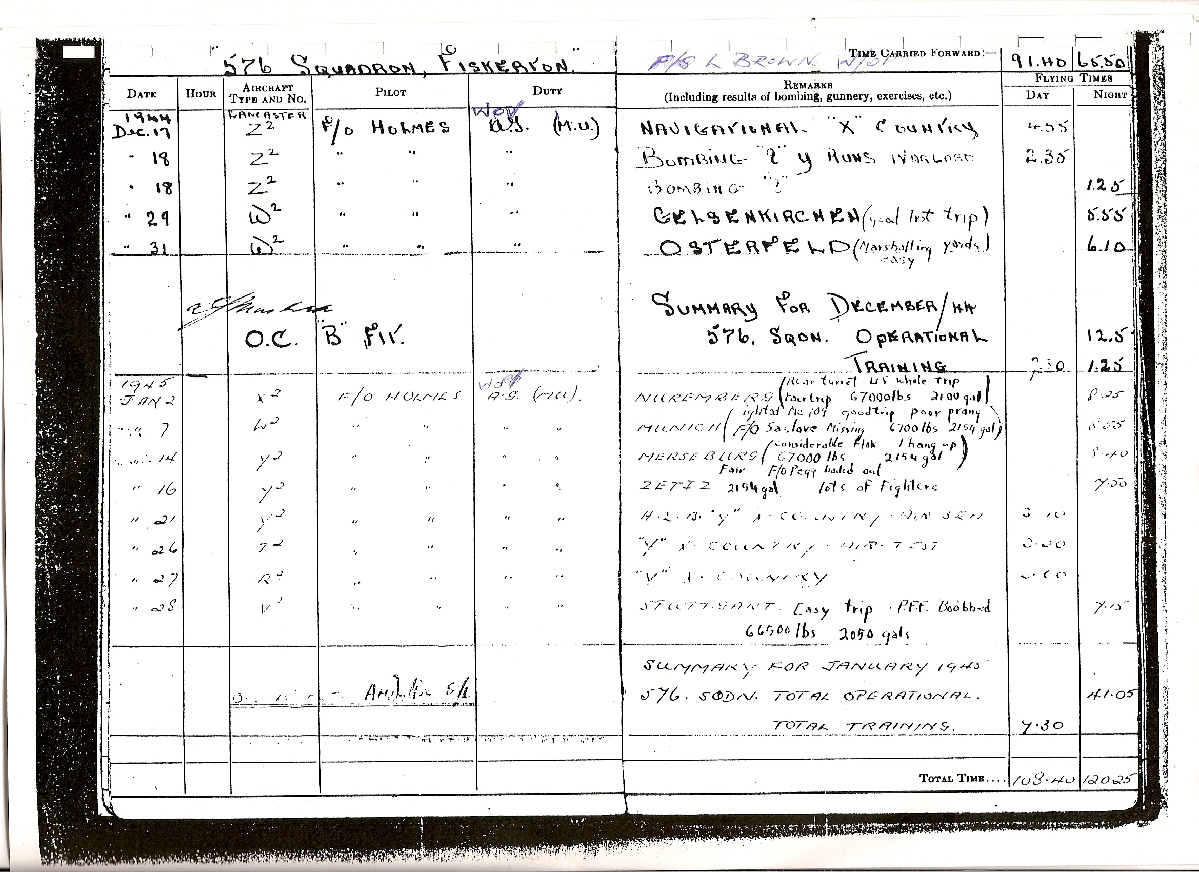 "576 SQUADRON, FISKERTON."
F/S L BROWN W/OP
TIME CARRIED FORWARD:— 91.40 65.50
DATE HOUR AIRCRAFT TYPE AND NO. PILOT DUTY REMARKS (Including results of bombing, gunnery, exercises, etc.) FLYING TIMES DAY NIGHT
1944 LANCASTER WOP
DEC. 17 Z² F/O HOLMES A.G. (M.U.) NAVIGATIONAL "X" COUNTRY 4.55
" 18 Z² " " " BOMBING 2.35
" 18 Z² " " " BOMBING 1.25
" 29 W² " " " GELSENKIRCHEN (good 1st trip) 5.55
" 31 W² " " " OSTERFELD (Marshalling yards) 6.10
easy
SUMMARY FOR DECEMBER/44
O.C. "B" FLT. 576. SQDN. OPERATIONAL 12.5
TRAINING 7.30 1.25
1945 WOP (Rear turret US whole trip
JAN 2 X² F/O HOLMES A.G. (M.U.) NUREMBERG (Fair trip 67000lbs 2100 gal) 8.25
Me 109 good trip poor prang
" " 7 W² " " " " MUNICH (F/O Saslove Missing 6700lbs 2154 gal)
(Considerable Flak 1 hang up)
" " 14 Y² " " " " MERSEBURG (67000 lbs 2154 gal) 8.40
Fair F/O Pegg baled out
" 16 Y² " " " " ZEITZ 2154 gal lots of Fighters
" 21 Y² " " " " "Y" X-COUNTRY
" 26 " " " " "Y" X-COUNTRY AIR-TEST
" 27 R² " " " " X-COUNTRY
" 28 V² " " " " STUTTGART. Easy trip. P.F.F. Bobbed 7.15
66500 lbs 2050 gals
SUMMARY FOR JANUARY 1945
576. SQDN. TOTAL OPERATIONAL. 41.05
TOTAL TRAINING. 7.30
TOTAL TIME.... 108.40 120.25